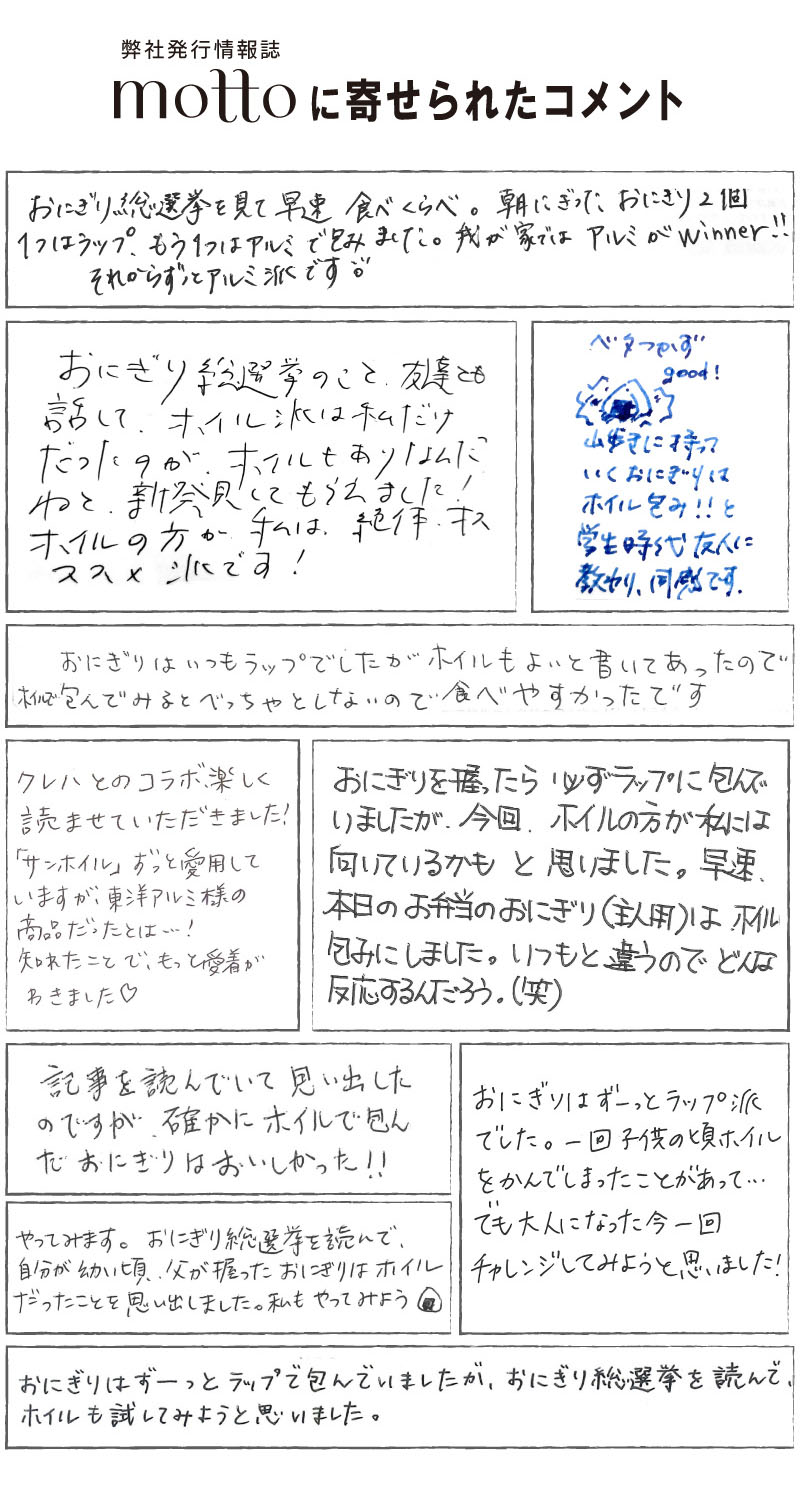 弊社発行情報誌
mottoに寄せられたコメント
おにぎり総選挙を見て早速 食べくらべ。朝にぎった、おにぎり2個
1つはラップ、もう1つはアルミで包みました。我が家では アルミがwinner!!
それからずっとアルミ派です
おにぎり総選挙のこと、友達とも
話して、ホイル派は私だけ
だったのが、ホイルもありなんだ
ねと、新発見してもらえました!
ホイルの方が、私は、絶体、オス
ススメ派です!
ベタつかず
good!
山歩きに持って
いくおにぎりは
ホイル包み!!と
学生時代友人に
教わり、同感です.
おにぎりはいつもラップでしたがホイルもよいと書いてあったので
ホイルで包んでみるとべっちゃとしないので食べやすかったです
クレハとのコラボ、楽しく
読ませていただきました!
「サンホイル」ずっと愛用して
いますが、東洋アルミ様の
商品だったとは…!
知れたことで、もっと愛着が
わきました♡
おにぎりを握ったら必ずラップに包んで
いましたが、今回、ホイルの方が私には
向いているかも と 思いました。早速、
本日のお弁当のおにぎり(主人用)は、ホイル
包みにしました。いつもと違うので どんな
反応するんだろう。(笑)
記事を読んでいて 思い出した
のですが、確かに ホイルで包ん
だ おにぎりは おいしかった!!
おにぎりはずーっとラップ派
でした。一回子供の頃ホイル
をかんでしまったことがあって…
でも大人になった今一回
チャレンジしてみようと思いました!
やってみます。おにぎり総選挙を読んで、
自分が幼い頃、父が握ったおにぎりはホイル
だったことを思い出しました。私もやってみよう
おにぎりはずーっとラップで包んでいましたが、おにぎり総選挙を読んで、
ホイルも試してみようと思いました。